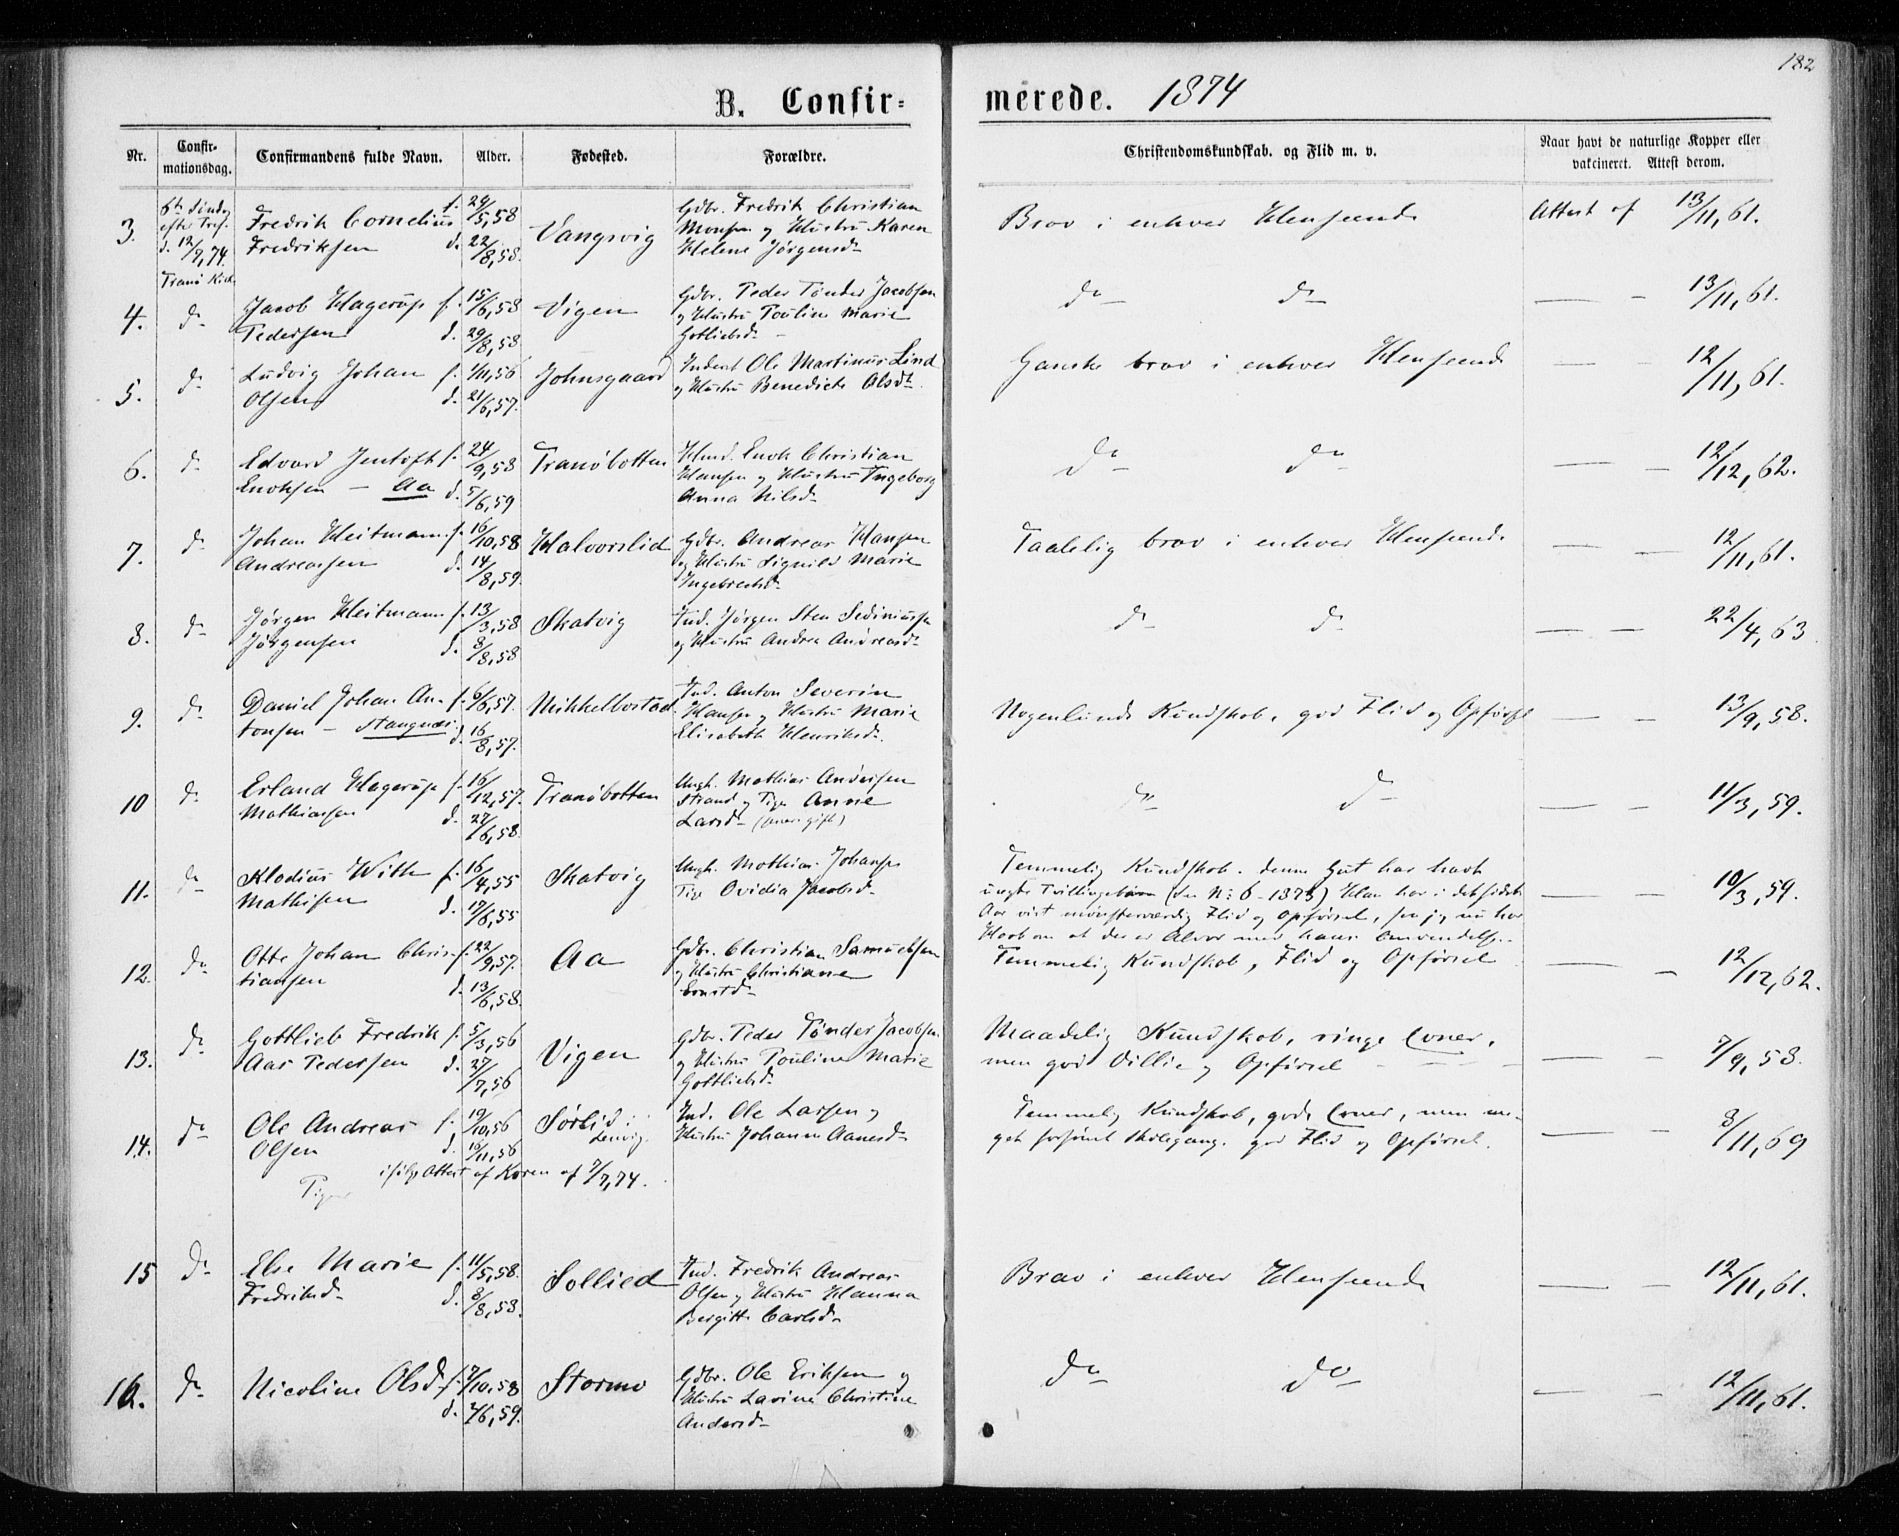 182
B. Confirmerede. 1874
Nr. Confirmationsdag. Confirmandens fulde Navn. Alder. Fødested. Forældre. Christendomskundskab. og Flid m. v. Naar havt de naturlige Kopper eller vakcineret. Attest derom.
3. 6te Søndag efter Tref. d. 12/7,74. Tranø Kirke
Fredrik Cornelius f. 24/5,58 Vangsvig Gdbr. Fredrik Christian Brav i enhver Henseende Attest af 13/11,61.
Fredriksen d. 22/8,58. Monsen og Hustru Karen
Helene Jørgensdr
4. do Jacob Hagerup f. 15/6,58 Vigen Gdbr. Peder Tønder Jacobsen do do — - 13/11,61.
Pedersen d. 29/8,58 og Hustru Pouline Marie
Gotliebsdr -
5. do Ludvig Johan f. 1/11,56 Johnsgaard Inderst Ole Martinus Lind Ganske brav i enhver Henseende — — 12/11,61.
Olsen d. 21/6,57. og Hustru Benedicte Olsdr.
6. do Edvard Jentoft f. 24/9,58 Tranøbotten Hmd. Enok Christian do do — — 12/12,62.
Enoksen — Aa d. 5/6,59 Hansen og Hustru Ingeborg
Anna Nilsdr
7. do Johan Heitmann f. 16/10,58 Halvorslid Gdbr. Andreas Hansen Taalelig brav i enhver Henseende — — 12/11,61.
Andreassen d. 14/8,59. og Hustru Signild Marie
Ingebrectsdr
8. do Jørgen Heitmann f. 13/3,58 Skatvig Ind. Jørgen Sten Sediniussen do do — — 22/4,63
Jørgensen d. 8/8,58 og Hustru Andrea Andreasdr
9. do Daniel Johan An- f. 6/6,57. Mikkelbostad Ind. Anton Severin Nogenlunde Kundskab, god Flid og Opførsel — — 13/9,58.
tonsen — Stangnæs d. 16/8,57. Hansen og Hustru Marie
Elisabeth Henriksdr.
10 do Erland Hagerup f. 16/12,57. Tranøbotten Ungk. Mathias Andersen do do — — 11/3,59.
Mathiassen d. 27/6,58. Strand og Pige Anne
Larsdr
11. do Klodius With f. 16/4,55 Skatvig Ungk. Mathias Johansen Temmelig Kundskab. denne Gut har havt — — 10/3,59.
Mathisen d. 17/6,55 Pige Ovidia Jacobsdr uægte Tvillingebørn (see No 6 - 1873) Han har i det sidste
Aar vist mønsterværdig Flid og Opførsel, saa jeg nu har
Haab om at der er Alvor med hans Omvendelse.
12. do Otto Johan Chris- f. 22/9,57. Aa Gdbr. Christian Samuelsen Temmelig Kundskab, Flid og Opførsel — — 12/12,62.
tiansen d. 13/6,58. og Hustru Christiane
Ernstdr
13. do Gottlieb Fredrik f. 5/3,56 Vigen Gdbr. Peder Tønder Jacobsen Maadelig Kundskab, ringe Evner,
Aas Pedersen d. 27/7,56 og Hustru Pouline Marie men god Villie og Opførsel — — 7/9,58.
Gottliebsdr
14. do Ole Andreas f. 19/10,56 Sørlid Ind. Ole Larsen og Temmelig Kundskab, gode Evner, men me-
Olsen d. 16/11,56 Lenvig. Hustru Johanne Aanesdr get forsømt Skolegang. god Flid og Opførsel. — — 8/11,69
ifølge Attest af Koren af 7/7,74.
Piger
15 do Else Marie f. 11/5,58. Sollied Ind. Fredrik Andreas Brav i enhver Henseende — — 12/11,61.
Fredriksdr d. 8/8,58. Olsen og Hustru Hanna
Bergitte Carlsdr
16. do Nicoline Olsdr f. 7/10,58 Stormo Gdbr. Ole Eriksen og do do — — 12/11,61.
d. 2/6,59. Hustru Lavina Christine
Andersdr